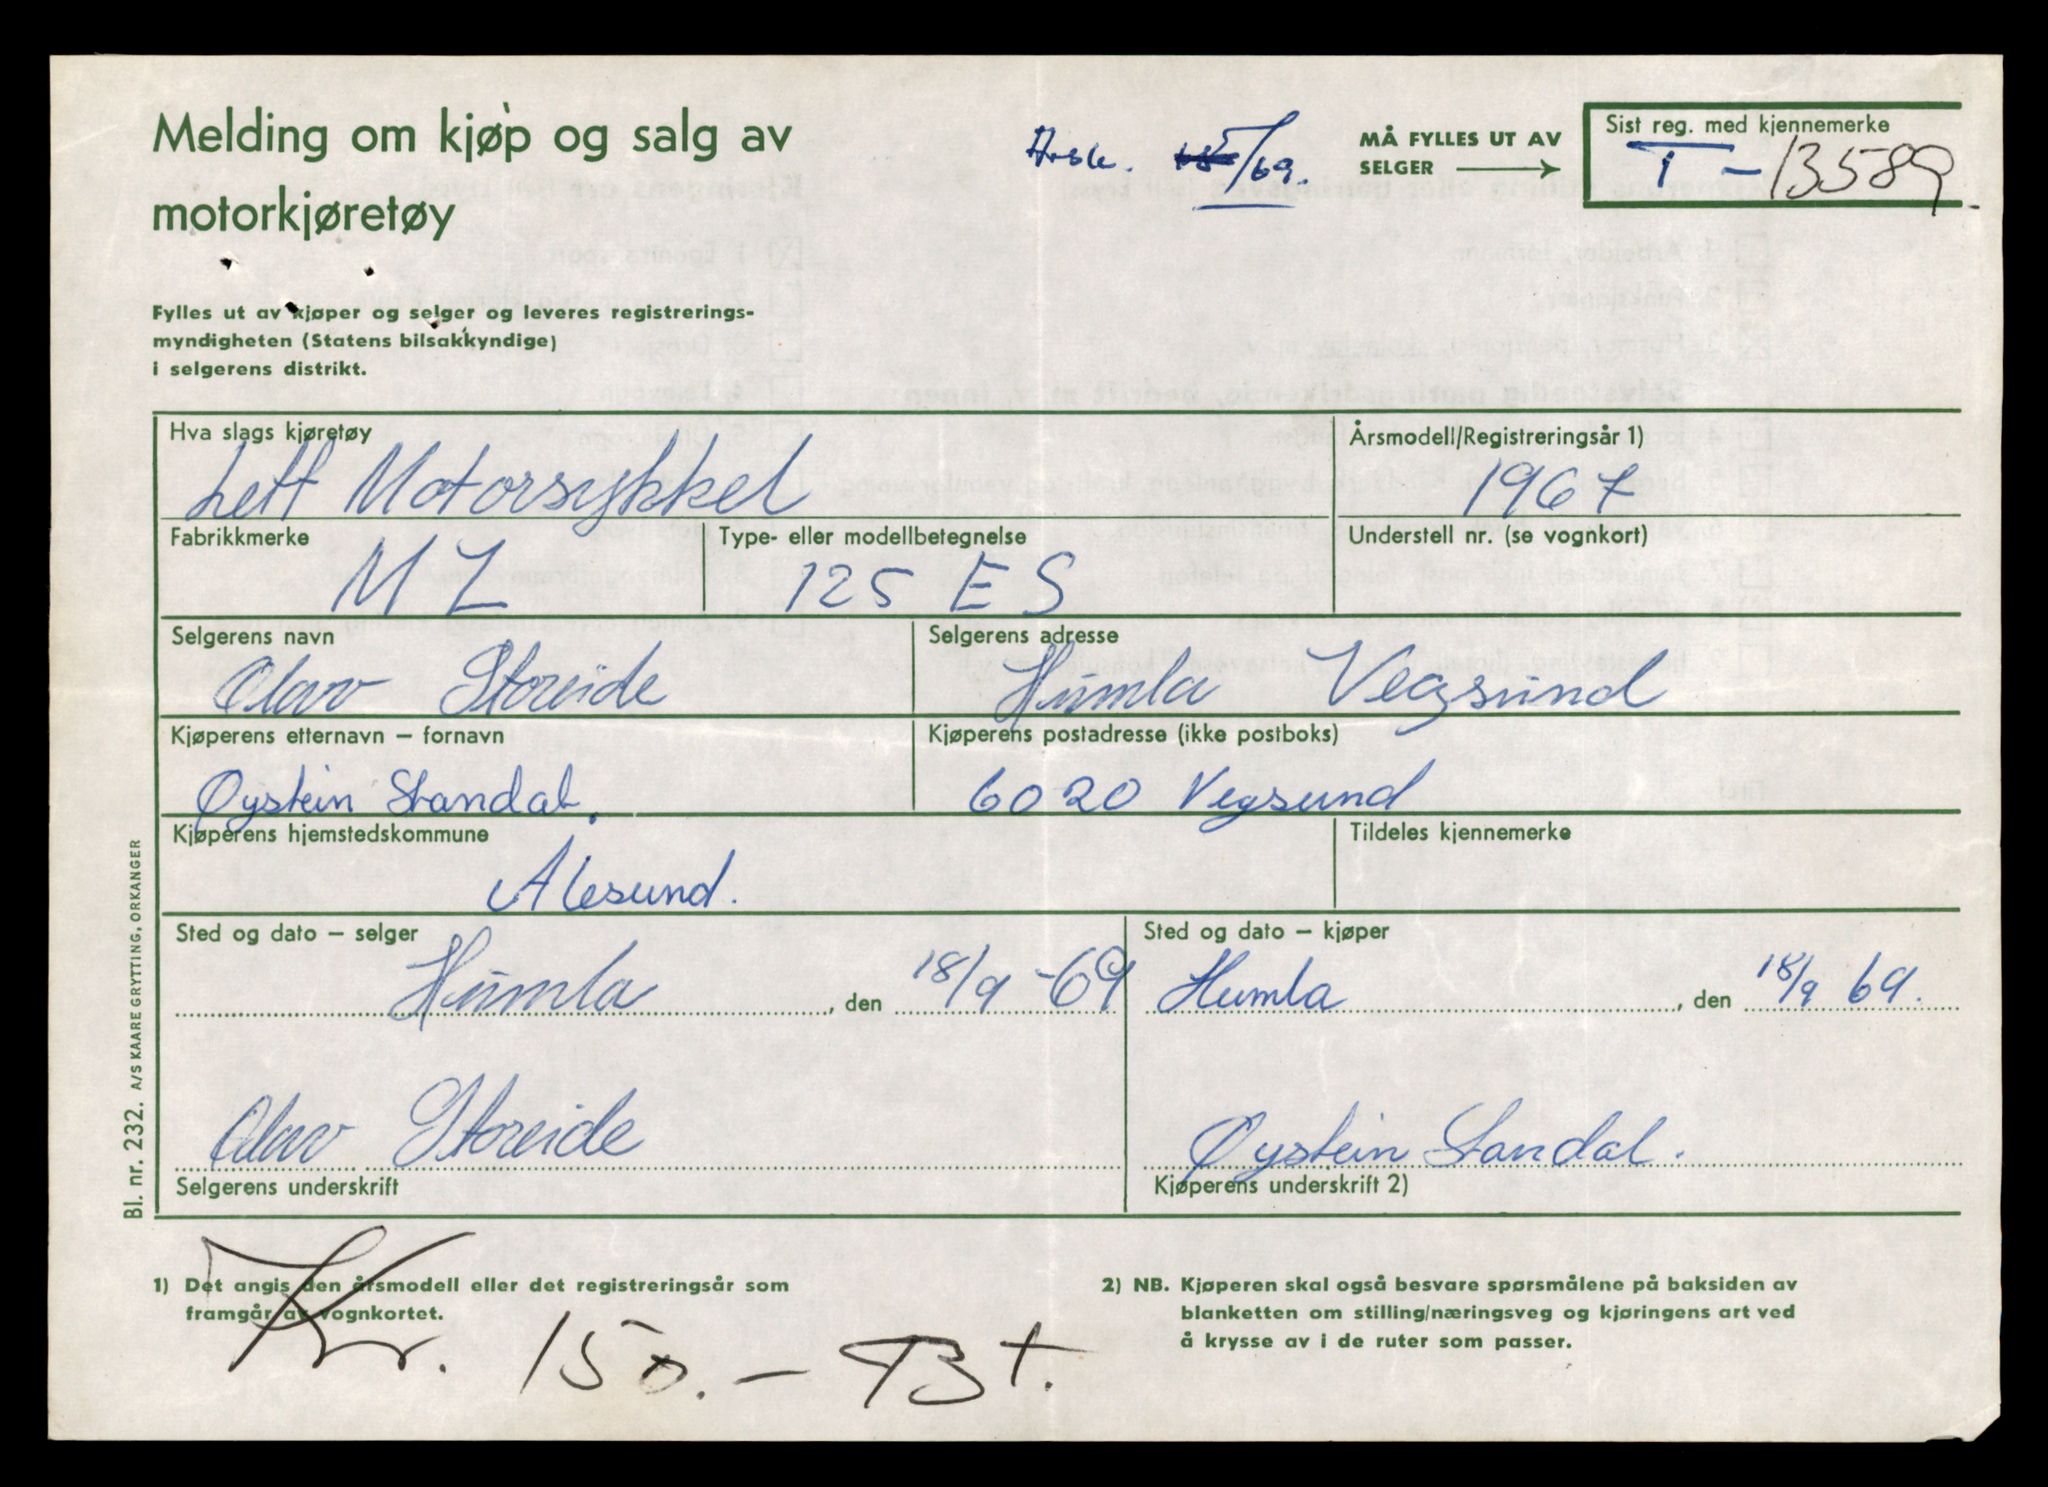 Melding om kjøp og salg av
motorkjøretøy
/69.
MÅ FYLLES UT AV
SELGER
Sist reg. med kjennemerke
T - 13589
Fylles ut av kjøper og selger og leveres registrerings-
myndigheten (Statens bilsakkyndige)
i selgerens distrikt.
Hva slags kjøretøy
Lett Motorsykkel
Årsmodell/Registreringsår 1)
1967
Fabrikkmerke
MZ
Type- eller modellbetegnelse
125 ES
Understell nr. (se vognkort)
Selgerens navn
Olav Storeide
Selgerens adresse
Humla Vegsund
Kjøperens etternavn – fornavn
Øystein Standal.
Kjøperens postadresse (ikke postboks)
6020 Vegsund
Kjøperens hjemstedskommune
Ålesund.
Tildeles kjennemerke
Sted og dato – selger
Humla, den 18/9 -69
Sted og dato – kjøper
Humla, den 18/9 69.
Olav Storeide
Selgerens underskrift
Øystein Standal.
Kjøperens underskrift 2)
1) Det angis den årsmodell eller det registreringsår som
framgår av vognkortet.
2) NB. Kjøperen skal også besvare spørsmålene på baksiden av
blanketten om stilling/næringsveg og kjøringens art ved
å krysse av i de ruter som passer.
Kr. 150.- Bt.
Bl. nr. 232. A/S KAARE GRYTTING, ORKANGER